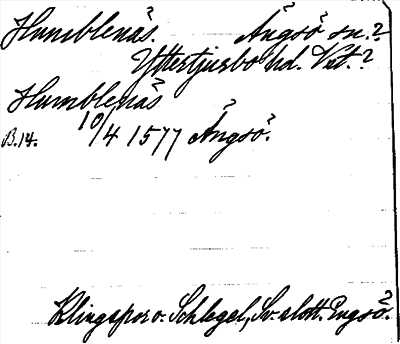 Humblenäs. Ängsö sn.?
Yttertjurbo hd. Vstm.?
Humblenäs
B.14. 10/4 1577 Ängsö.
Klingspor o. Schlegel, Sv. slott. Engsö.